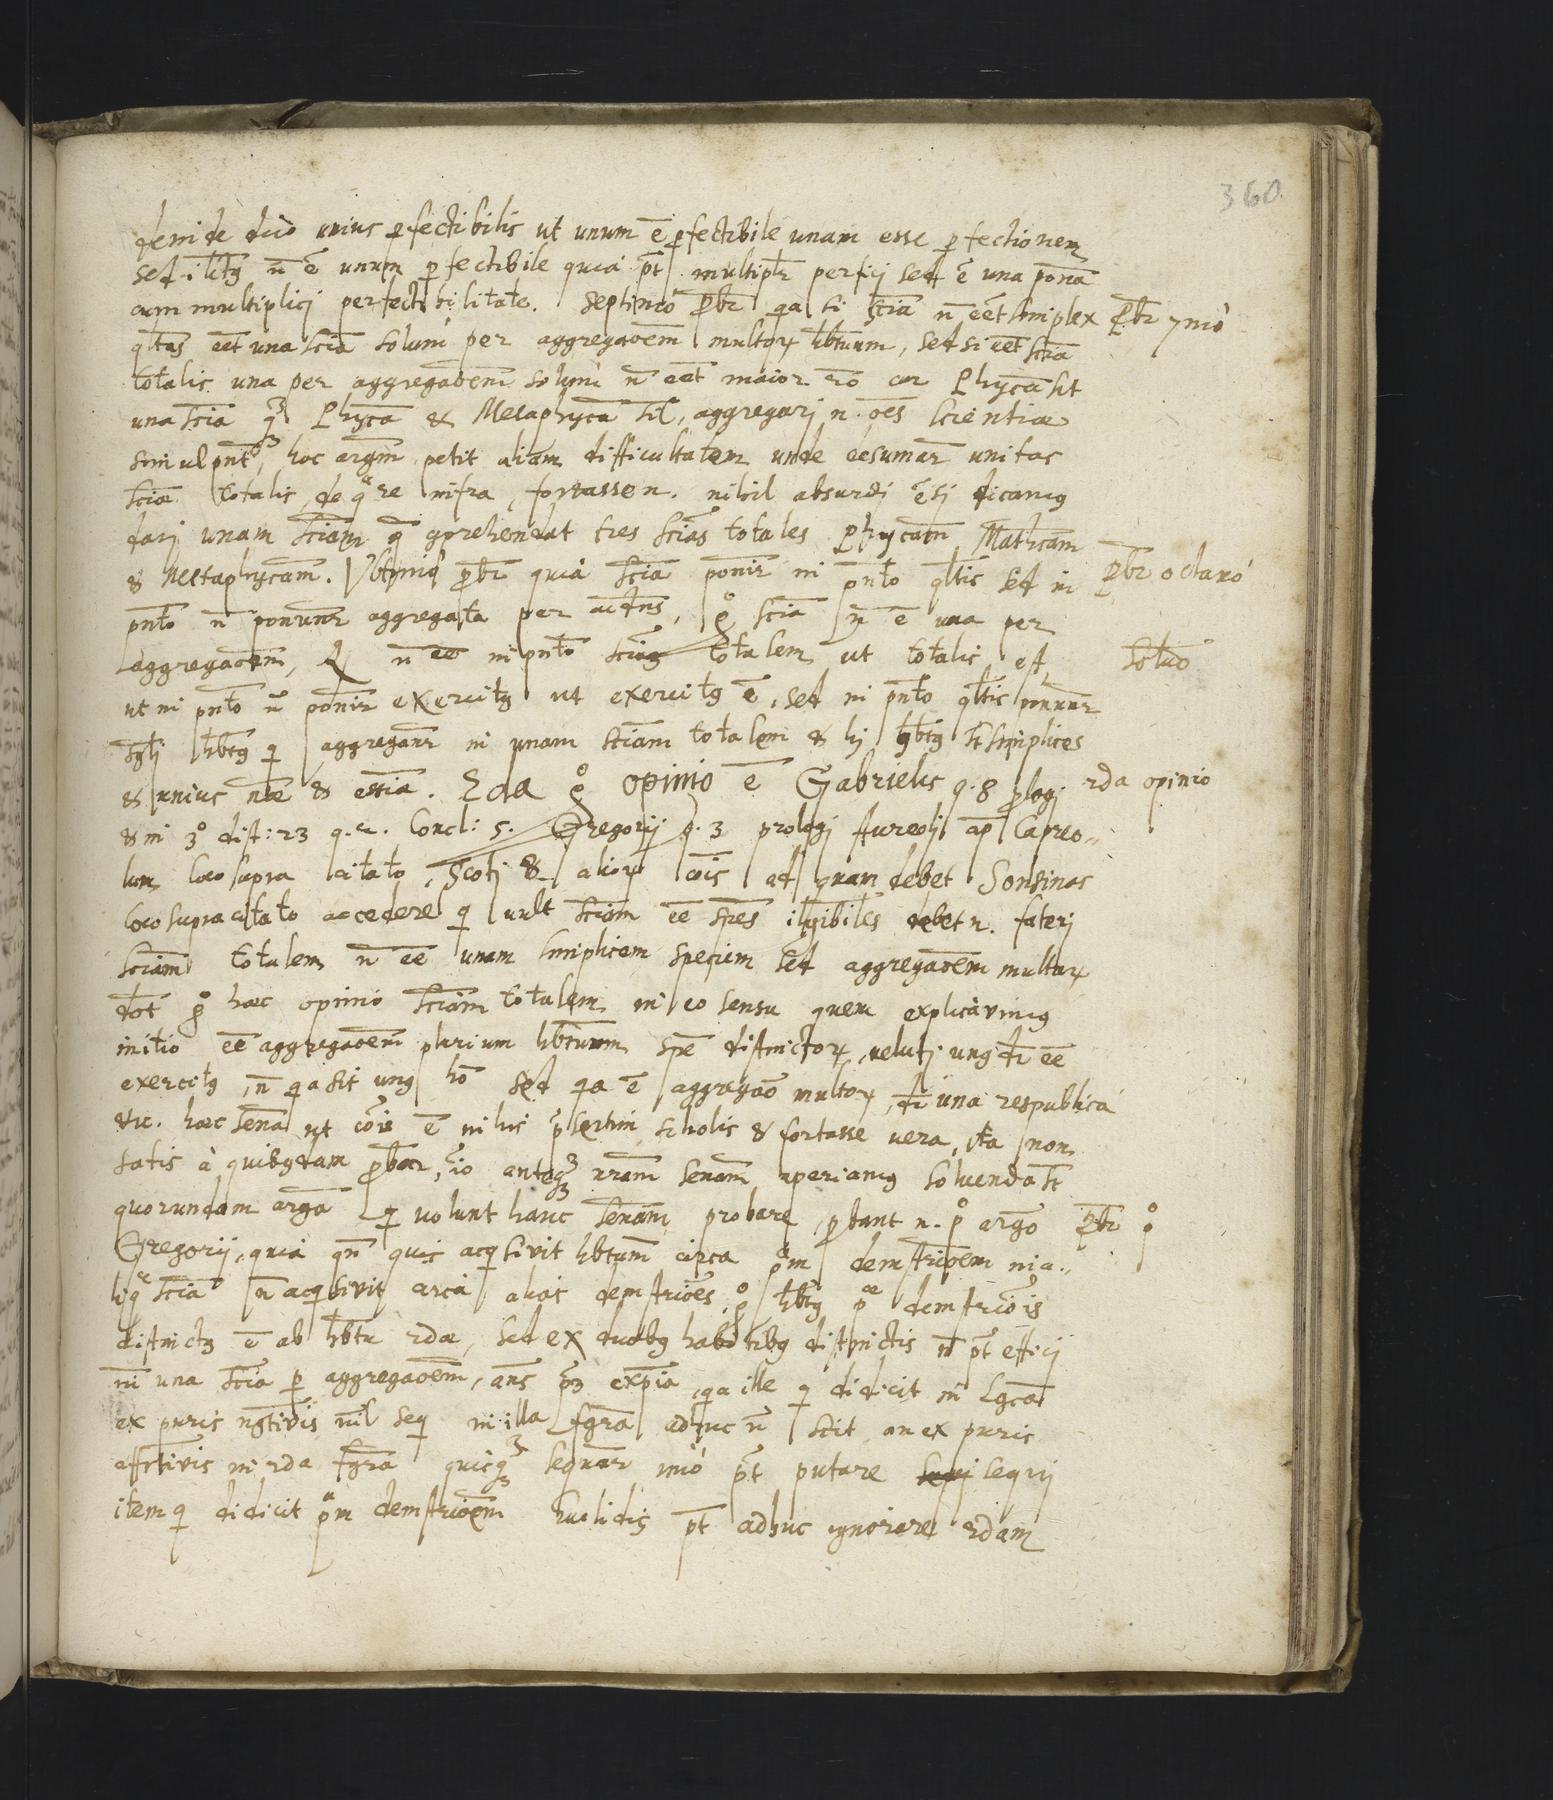 360
deinde duò unius perfectibilis ut unum ē perfectibile unam esse perfectionem
sed illt9 n̄ ē unum perfectibile quia pt̄ multiplr̄ perficj sed ē una ponā
cum multiplicj perfectibilitate. septimò Pbr̄ qa si sciā n̄ eēt simplex Pbr̄ 7mò
qltas eēt una sciā solùm per aggregaoēm multorꝝ hbtuum, sed si eēt sciā
totalis una per aggregaoēm solùm n̄ eēt maior rō cur Phycā sit
una sciā qꝫ Phycā & Metaphycā sil, aggregarj n. oēs scientiæ
simul pnt, hoc argm̄ petit aliam difficultatem unde desumar̄ unitas
sciæ totalis, de qª re infra, fortasse n. nihil absurdi ē sj dicam9
darj unam sciam q̄ cprehendat tres scias totales Phycam Mathcam
& Metaphycam. Vltimò pbr̄ quia sciā ponir̄ in pnt̄o qltis sed in Pbr̄ octavò
pnt̄o n̄ ponunr̄ aggregata per accdns, gͦ sciā n̄ ē una per
aggregaoēm, R n̄ eē in pnt̄o sciam totalem ut totalis est, solutio
ut in pnt̄o n̄ ponir̄ exercit9 ut exercit9 ē, sed in pnt̄o qltis ponunr̄
sglj hbt9 q aggreganr̄ in unam sciam totalem & hj hbt9 st̄ simplices
& unius næ & esstiæ. 2da gͦ opinio ē Gabrielis q. 8 prologj 2da opinio
& in 3º dist: 23 q. 2. Concl: 5. Gregorij q. 3 prologj Aureolj ap̄ Capreo..
lum loco supra citato, Scotj & aliorꝝ cōis ad quam debet Sonsinas
loco supra citato accedere q vult sciam eē spēs itlligibiles debet n. faterj
sciam totalem n̄ eē unam simplicem speciem sed aggregaoēm multarꝝ
dot gͦ hæc opinio sciam totalem in eo sensu quem explicavim9
initio eē aggregaoēm plurium hbtuum spē distinctorꝝ, velutj un9 dr̄ eē
exercit9, n̄ qa sit un9 hō sed qa ē aggregaō multorꝝ, dr̄ una respublica
etc. hæc senā ut cōis ē in his psertim scholis & fortasse vera, ita non
satis à quibusdam pbar̄, iō anteqꝫ nram senam aperiam9 solvenda st̄
quorundam argā q volunt hanc senam probare, pbant n. pº argo Pbr̄ pº
Gregorij, quia qn̄ quis acqsivit hbtum circa pªm demstrioēm in a..
liqª sciā n̄ acqsivit circa alias demstrioēs, gͦ hbt9 pæ demstriois
distinct9 ē ab hbtu 2dæ, sed ex duob9 habitib9 distinctis n̄ pt̄ efficj
nī una sciā p aggregaoēm, ans pꝫ expiā, qa ille q didicit in Lgcā
ex puris ngtivis nil seq in illa fgrā adhuc n̄ scit an ex puris
affrtivis in 2da fgrā quicqꝫ sequar̄ imò pt̄ putare seqnj sequj
item q didicit pªm demstrioēm Euclidis pt̄ adhuc ignorare 2dam